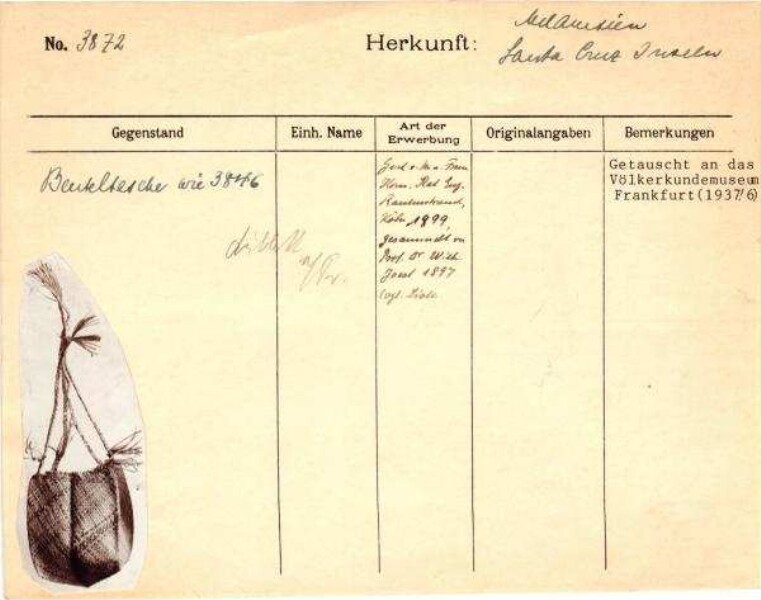 No. 3872
Herkunft: Melanesien
Santa Cruz Inseln
Gegenstand
Einh. Name
Art der Erwerbung
Originalangaben
Bemerkungen
Beuteltasche wie
Gesch. v. Frau
Kais. Rat Eug.
Rautenstrauch,
Köln 1899,
gesammelt von
Prof. Dr Wilh.
Joest 1897
Getauscht an das
Völkerkundemuseum
Frankfurt(1937/6)